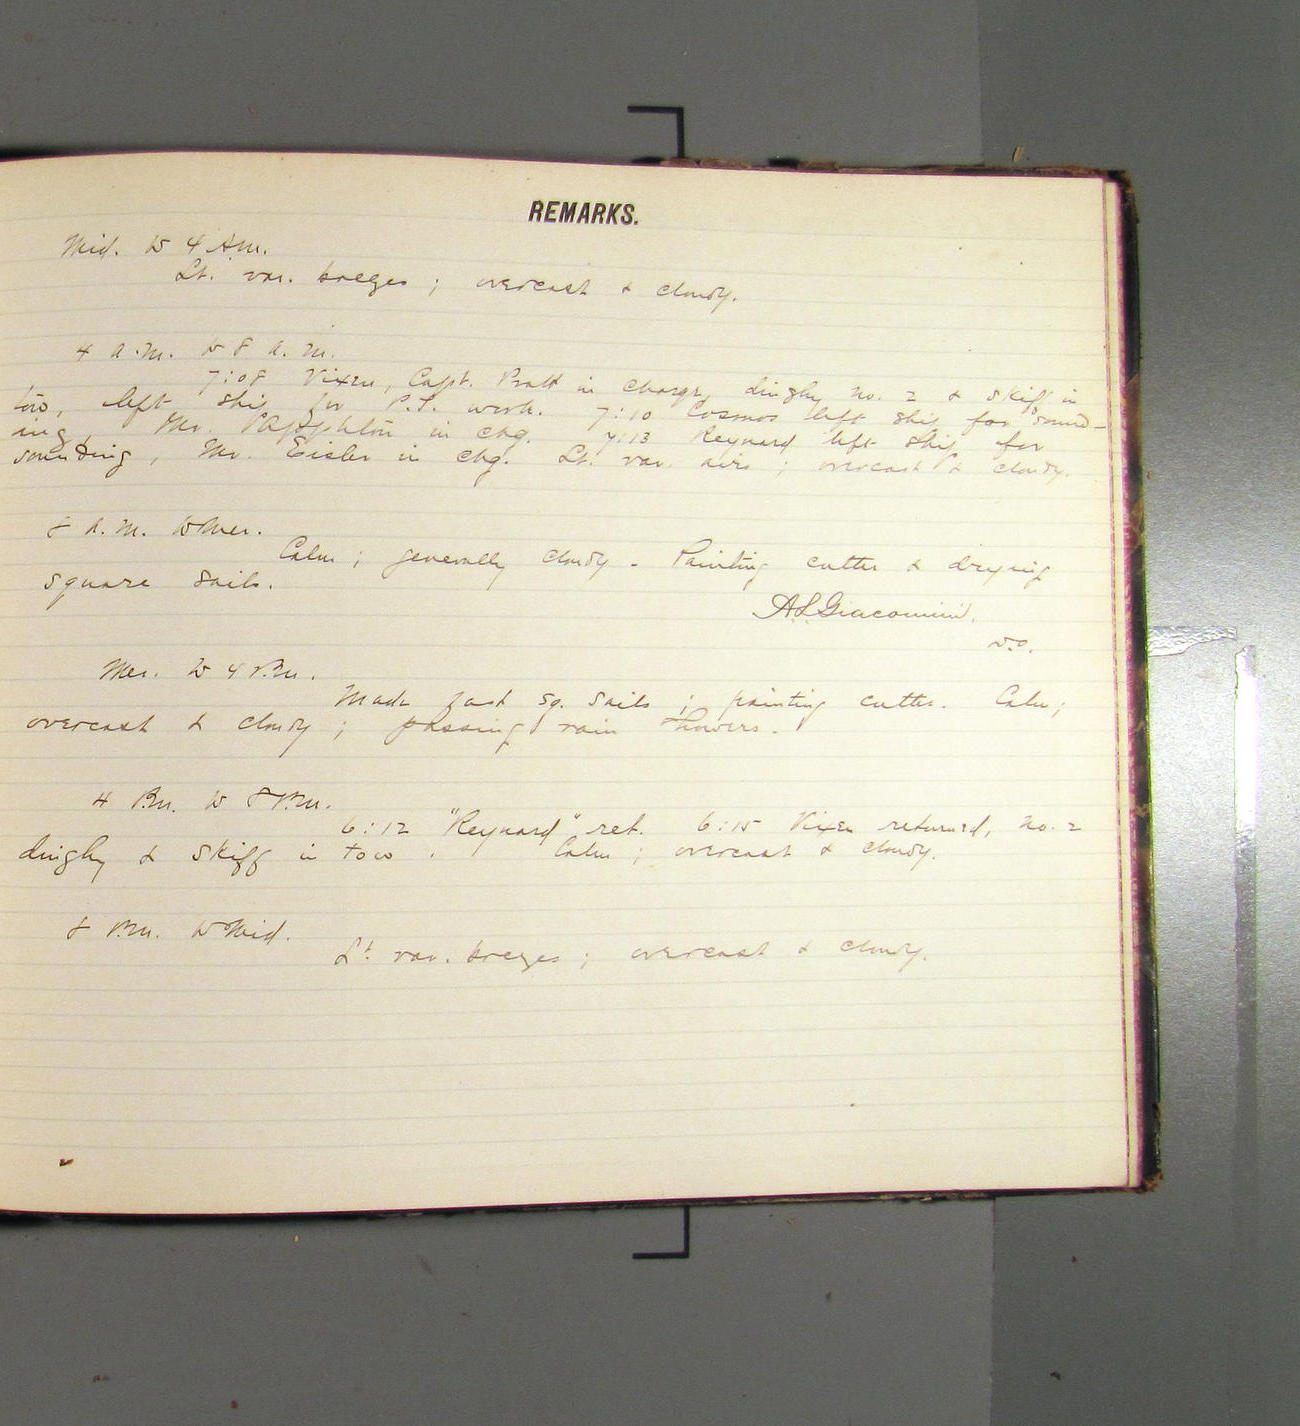 REMARKS.
Mid. to 4 A.m.
Lt. var. breezes ; overcast & cloudy.
4 a.m. to 8 a.m.
7:08 Vixen, Capt. Pratt in charge, dinghy No. 2 & skiff in
tow, left ship for P.L. work. 7:10 Cosmos left ship for sound-
ing, Mr. in chg. 7:13 Reynard left ship for
sounding, Mr. Eisler in chg. Lt. var. airs ; overcast & cloudy.
8 a.m. to Mer.
Calm ; generally cloudy - Painting cutter & drying
square sails.
A.L. Giacomini.
W.O.
Mer. to 4 P.m.
Made fast sq. sails ; painting cutter. Calm ;
overcast & cloudy ; passing rain showers.
4 P.m. to 8 P.m.
6:12 "Reynard" ret. 6:15 Vixen returned, No. 2
dinghy & skiff in tow. Calm ; overcast & cloudy.
8 P.m. to Mid.
Lt. var. breezes ; overcast & cloudy.